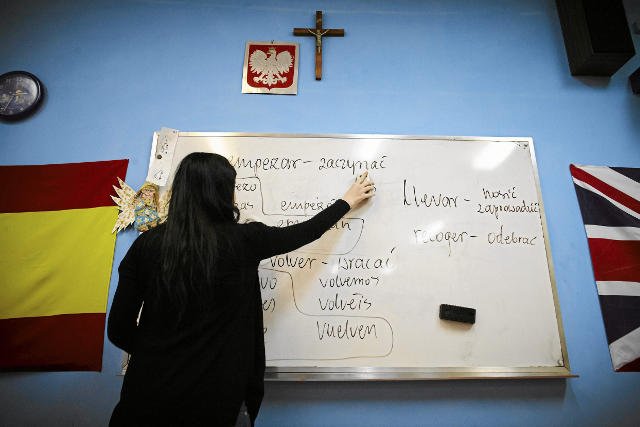 empezar - zaczynać
empeza
volver - wracać
volvemos
volvéis
vuelven
llevar - nosić
zaprowadzić
recoger - odebrać